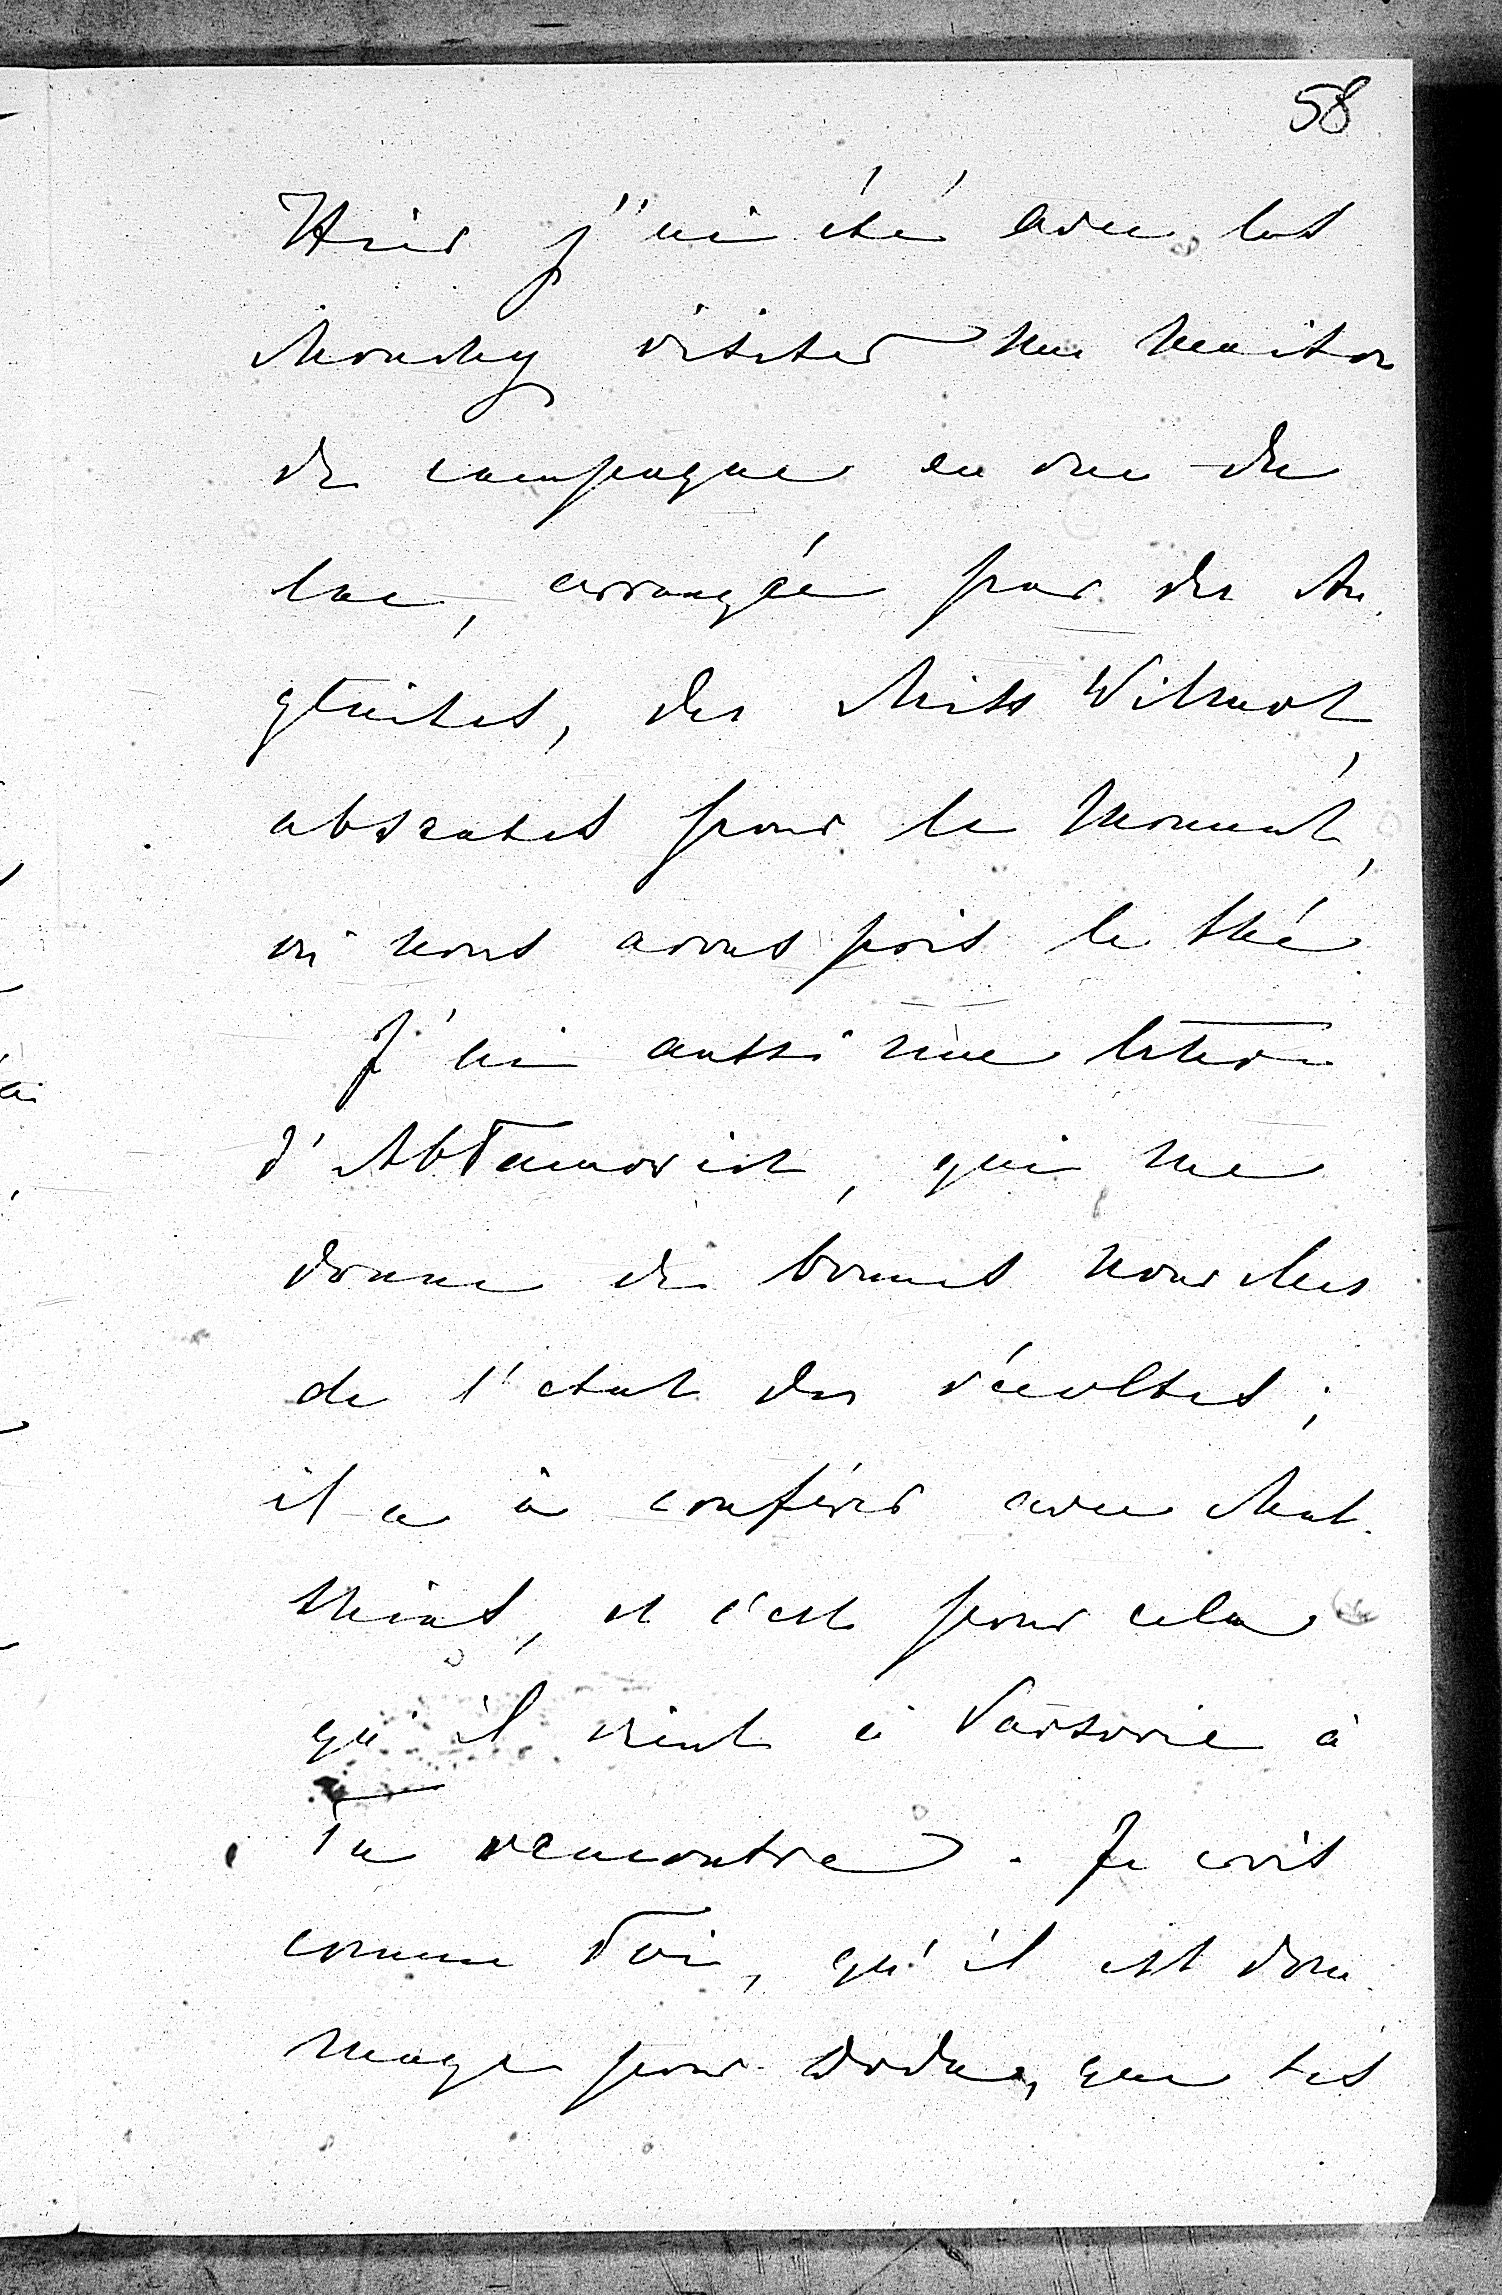 58
Hier j'ai été avec les
Mouchy visiter une maison
de campagne en vue du
lac, arrangée par des An
glaises, des Miss Wilmot,
absentes pour le moment,
où nous avons pris le thé.
J'ai aussi une lettre
d'Abramovich, qui me
donne de bonnes nouvelles
de l'état des récoltes;
il a à conférer avec Mat
thias, et c'est pour cela
qu'il vient à Varsovie à
Ta rencontre. Je crois
comme Toi, qu'il est dom
mage pour Dodo, que tes